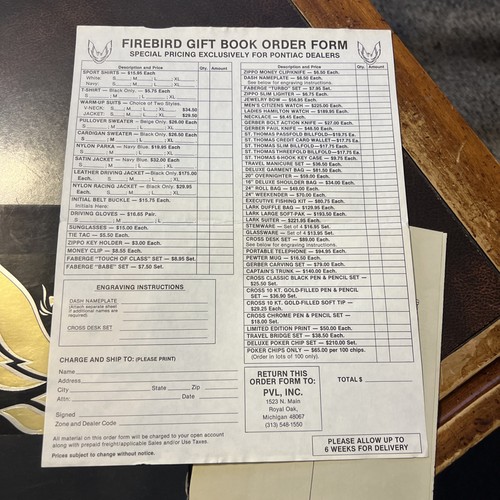 FIREBIRD GIFT BOOK ORDER FORM
SPECIAL PRICING EXCLUSIVELY FOR PONTIAC DEALERS
Description and Price Qty. Amount
SPORT SHIRTS — $15.95 Each.
White: S____ M____ L____ XL____
Navy: S____ M____ L____ XL____
T-SHIRT — Black Only. — $5.75 Each.
S____ M____ L____ XL____
WARM-UP SUITS — Choice of Two Styles.
V-NECK: S____ M____ L____ XL____ $34.50
JACKET: S____ M____ L____ XL____ $29.50
PULLOVER SWEATER — Beige Only. $26.00 Each.
S____ M____ L____ XL____
CARDIGAN SWEATER — Black Only. $26.50 Each.
S____ M____ L____ XL____
NYLON PARKA — Navy Blue. $19.85 Each.
S____ M____ L____ XL____
SATIN JACKET — Navy Blue. $32.00 Each.
S____ M____ L____ XL____
LEATHER DRIVING JACKET — Black Only. $175.00
Each. S____ M____ L____ XL____
NYLON RACING JACKET — Black Only. $29.95
Each. S____ M____ L____ XL____
INITIAL BELT BUCKLE — $15.75 Each.
Initials Here:
DRIVING GLOVES — $16.85 Pair.
S____ M____ L____ XL____
SUNGLASSES — $15.00 Each.
TIE TAC — $5.50 Each.
ZIPPO KEY HOLDER — $3.00 Each.
MONEY CLIP — $8.55 Each.
FABERGE "TOUCH OF CLASS" SET — $8.95 Set.
FABERGE "BABE" SET — $7.50 Set.
ENGRAVING INSTRUCTIONS
DASH NAMEPLATE
(Attach separate sheet
if additional names are
required)
CROSS DESK SET
CHARGE AND SHIP TO: (PLEASE PRINT)
Name
Address
City State Zip
Attn: Date
Signed
Zone and Dealer Code
All material on this order form will be charged to your open account
along with prepaid freight/applicable Sales and/or Use Taxes.
Prices subject to change without notice.
Description and Price Qty. Amount
ZIPPO MONEY CLIP/KNIFE — $6.50 Each.
DASH NAMEPLATE — $6.50 Each.
See below for engraving instructions.
FABERGE "TURBO" SET — $7.95 Set.
ZIPPO SLIM LIGHTER — $6.75 Each.
JEWELRY BOW — $56.95 Each.
MEN'S CITIZENS WATCH — $225.00 Each.
LADIES HAMILTON WATCH — $189.95 Each.
NECKLACE — $6.45 Each.
GERBER BOLT ACTION KNIFE — $27.00 Each.
GERBER PAUL KNIFE — $48.50 Each.
ST. THOMAS PASSFOLD BILLFOLD—$19.75 Ea.
ST. THOMAS CREDIT CARD WALLET—$17.75 Ea.
ST. THOMAS SLIM BILLFOLD—$17.75 Each.
ST. THOMAS THREEFOLD BILLFOLD—$17.75 Ea.
ST. THOMAS 6-HOOK KEY CASE — $9.75 Each.
TRAVEL MANICURE SET — $36.50 Each.
DELUXE GARMENT BAG — $81.50 Each.
20" OVERNIGHTER — $59.00 Each.
18" DELUXE SHOULDER BAG — $34.00 Each.
24" ROLL BAG — $49.00 Each.
24" WEEKENDER — $70.00 Each.
EXECUTIVE FISHING KIT — $80.75 Each.
LARK DUFFLE BAG — $129.95 Each.
LARK LARGE SOFT-PAK — $193.50 Each.
LARK SUITER — $221.95 Each.
STEMWARE — Set of 4 $16.95 Set.
GLASSWARE — Set of 4 $13.95 Set.
CROSS DESK SET — $89.00 Each.
See below for engraving instructions.
PORTABLE TELEPHONE — $94.95 Each.
PEWTER MUG — $16.50 Each.
GERBER CARVING SET — $79.00 Each.
CAPTAIN'S TRUNK — $140.00 Each.
CROSS CLASSIC BLACK PEN & PENCIL SET —
$25.50 Set.
CROSS 10 KT. GOLD-FILLED PEN & PENCIL
SET — $36.90 Set.
CROSS 10 KT. GOLD-FILLED SOFT TIP —
$29.25 Each.
CROSS CHROME PEN & PENCIL SET —
$18.00 Set.
LIMITED EDITION PRINT — $50.00 Each.
TRAVEL BRIDGE SET — $38.50 Each.
DELUXE POKER CHIP SET — $210.00 Set.
POKER CHIPS ONLY — $65.00 per 100 chips.
(Order in lots of 100 only).
RETURN THIS
ORDER FORM TO:
PVL, INC.
1523 N. Main
Royal Oak,
Michigan 48067
(313) 548-1550
TOTAL $
PLEASE ALLOW UP TO
6 WEEKS FOR DELIVERY